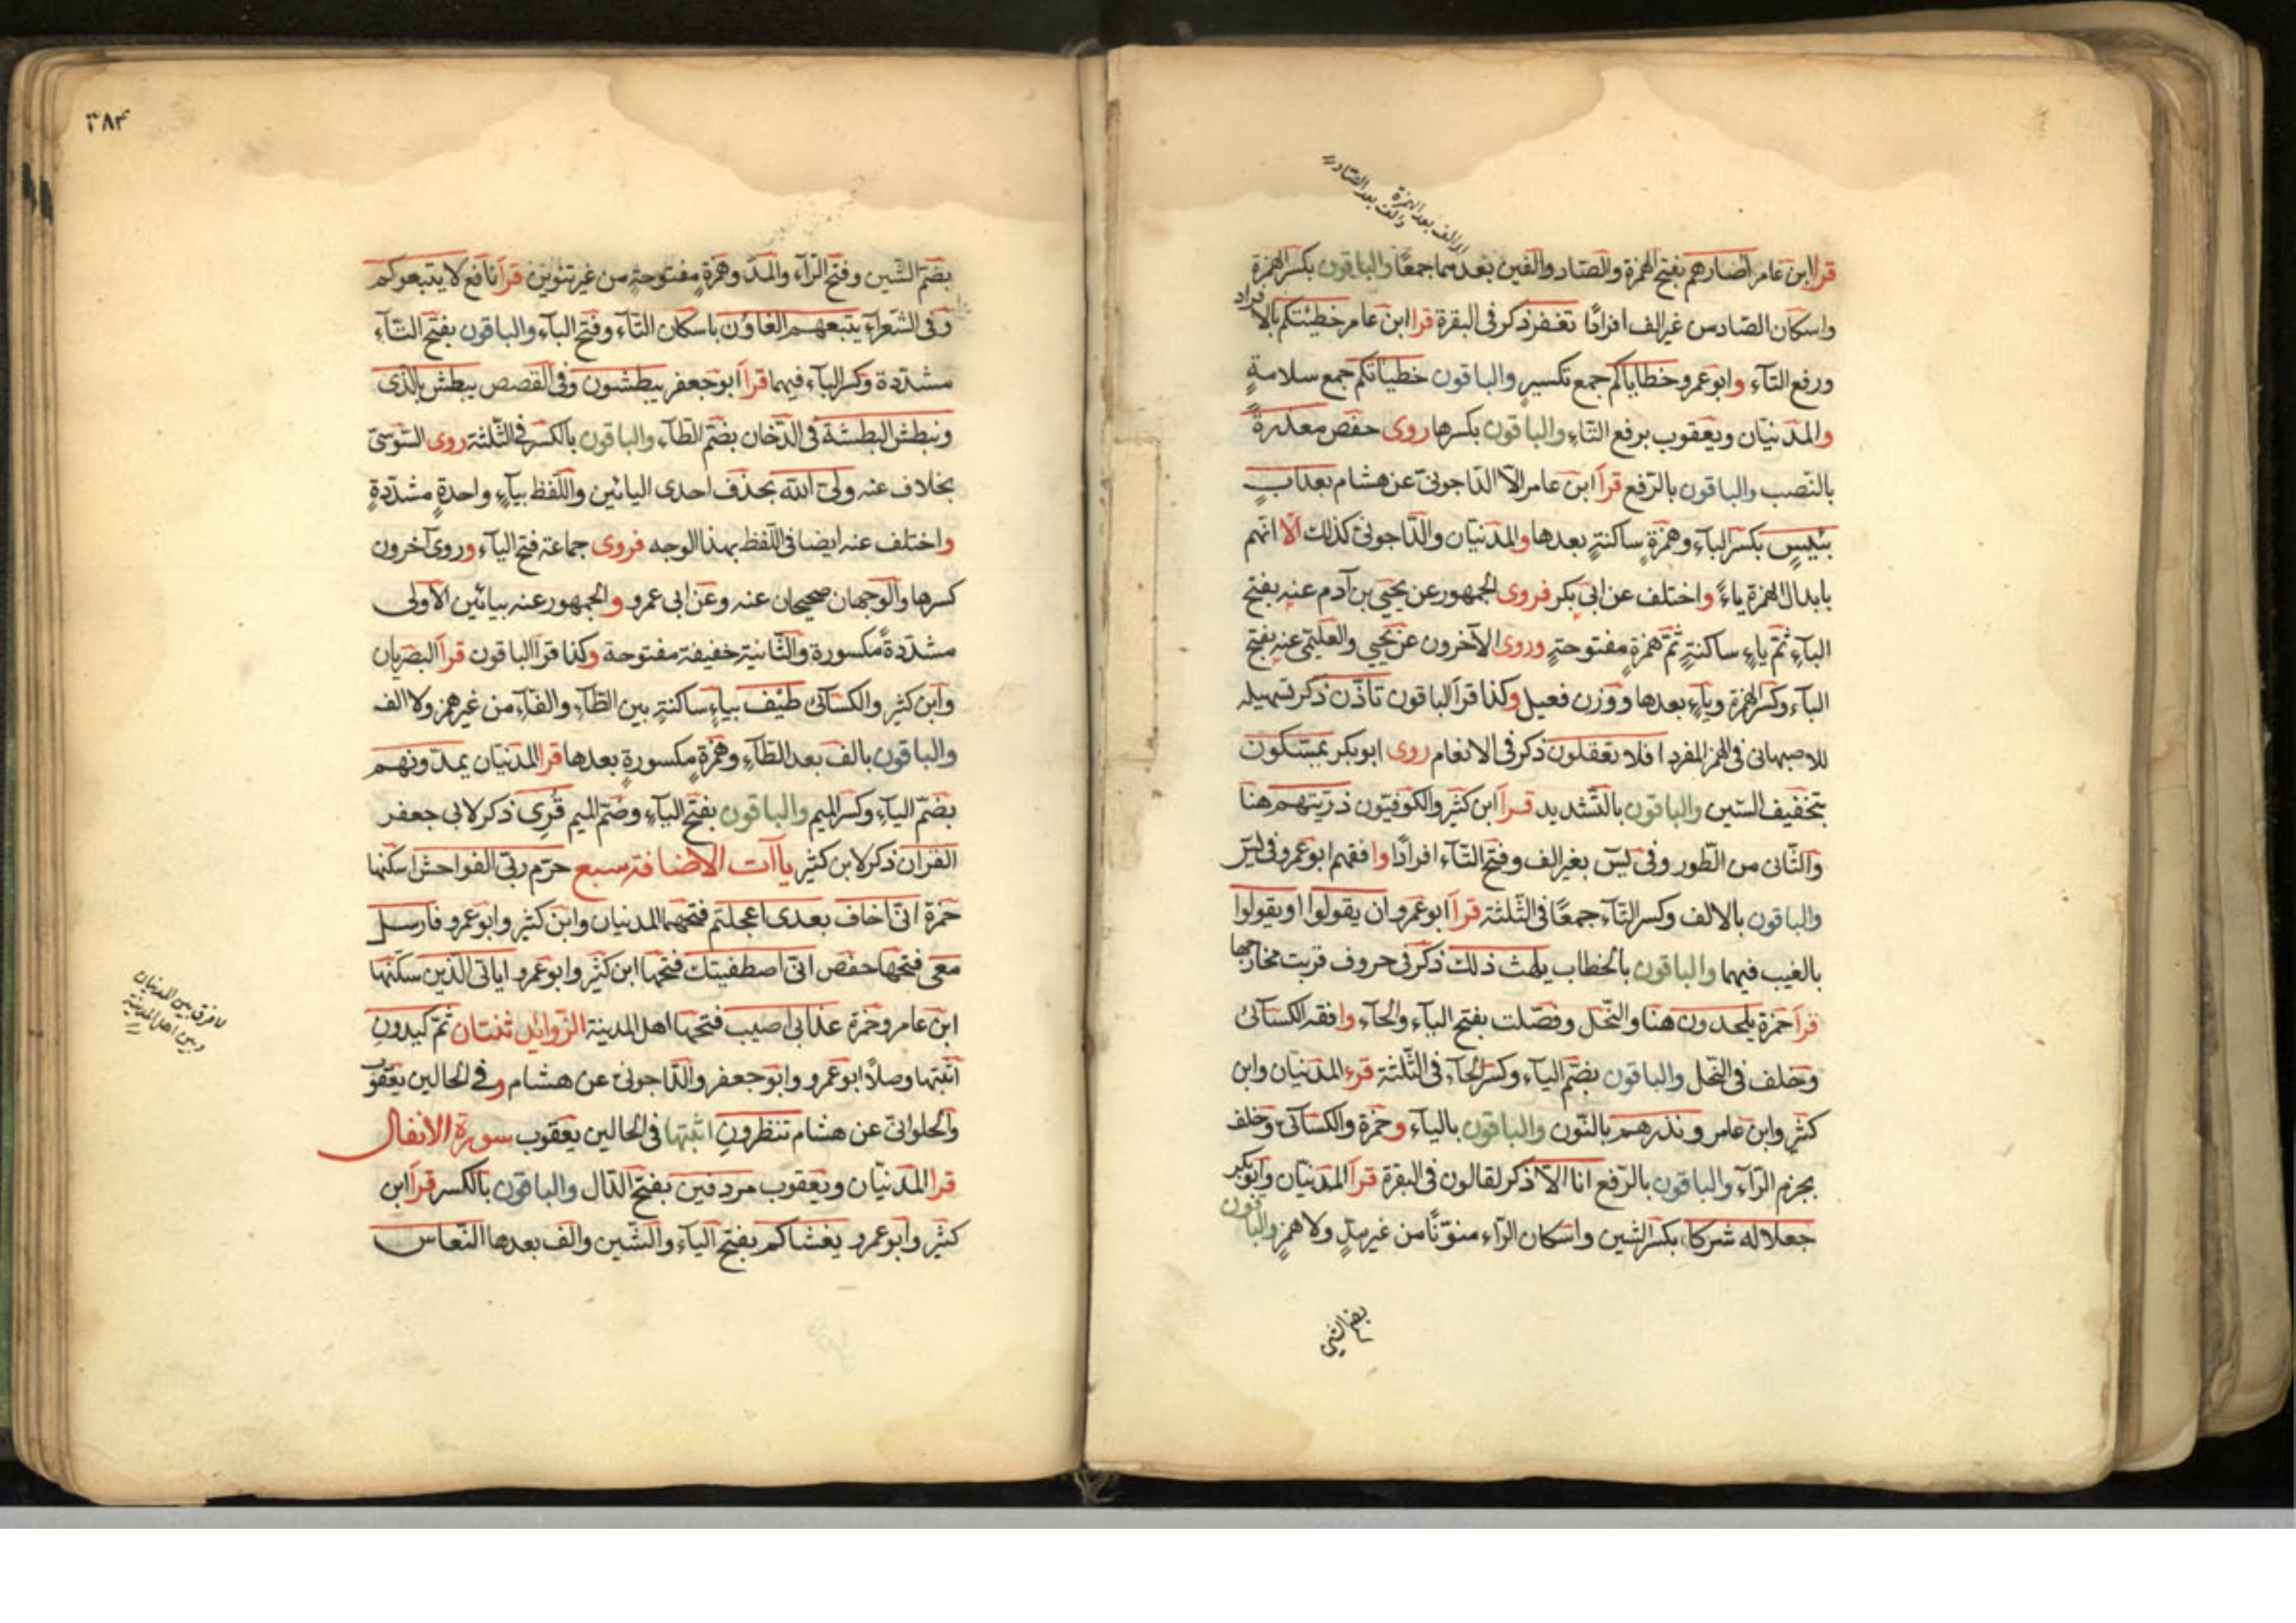 اى الف بعد الهمزة
والف بعد الصاد
قرا ابن عامر اصارهم بفتح الهمزة والصاد والفين بعدهما جمعًا والباقون بكسر الهمزة
واسكان الصاد من غير الف افرادًا تغفر ذكر فى البقرة قرا ابن عامر خطيئتكم بالافراد
ورفع التآء وابو عمرو خطاياكم جمع تكسيرٍ والباقون خطيئاتكم جمع سلامةٍ
والمدنيان ويعقوب برفع التآء والباقون بكسرها روى حفص معذرةً
بالنّصب والباقون بالرّفع قرآ ابن عامر الّا الدّاجونىّ عن هشام بعذابٍ
بئيسٍ بكسر البآء وهمزةٍ ساكنةٍ بعدها والمدنيان والدّاجونىّ كذلك الّا انّهم
بابدال الهمزة ياءً واختلف عن ابى بكر فروى الجمهور عن يحيى بن آدم عنه بفتح
البآء ثمّ ياءٍ ساكنةٍ ثمّ همزةٍ مفتوحةٍ وروى الآخرون عن يحيى والعليمى عنه بفتح
البآء وكسر الهمزة وياءٍ بعدها ووزن فعيل وكذا قرآ الباقون تاذّن ذكر تسهيله
للاصبهانى فى الهمز المفرد افلا تعقلون ذكر فى الانعام روى ابو بكر يمسّكون
بتخفيف السّين والباقون بالتّشديد قرآ ابن كثير والكوفيّون ذرّيتهم هنا
والثّانى من الطّور وفى يسٓ بغير الف وفتح التآء افرادًا وافقهم ابو عمرو فى يسٓ
والباقون بالالف وكسر التآء جمعًا فى الثّلثة قرآ ابو عمرو ان يقولوا او يقولوا
بالغيب فيهما والباقون بالخطاب يلهث ذلك ذكر فى حروف قربت مخارجها
قرآ حمزة يلحدون هنا والنّحل وفصّلت بفتح اليآء والحآء وافقه الكسآئى
وخلف فى النّحل والباقون بضمّ اليآء وكسر الحآء فى الثّلثة قرء المدنيان وابن
كثير وابن عامر ونذرهم بالنّون والباقون باليآء وحمزة والكسآئى وخلف
بجزم الرّآء والباقون بالرّفع انا الّا ذكر لقالون فى البقرة قرآ المدنيّان وابو بكر
جعلا له شركا بكسر الشين واسكان الرّاء منوّنًا من غير مدٍّ ولا همزٍ والباقون
بضم الشين
٣٨٣
بضمّ الشين وفتح الرّآء والمدّ وهمزةٍ مفتوحةٍ من غير تنوين قرآ نافع لا يتبعوكم
وفى الشعرآء يتبعهم الغاوُن باسكان التآء وفتح البآء والباقون بفتح التآء
مشدّدة وكسر البآء فيهما قرآ ابو جعفر يبطشون وفى القصص يبطش بالّذى
ونبطش البطشة فى الدّخان بضمّ الطّآء والباقون بالكسر فى الثّلثة روى السّوسىّ
بخلاف عنه ولىّ الله بحذف احدى اليائين واللّفظ بياءٍ واحدةٍ مشدّدةٍ
واختلف عنه ايضا فى اللّفظ بهذا الوجه فروى جماعة فتح اليآء وروى آخرون
كسرها والوجهان صحيحان عنه وعن ابى عمرو والجمهور عنه بيائين الاولى
مشدّدةً مكسورة والثّانية خفيفة مفتوحة وكذا قرآ الباقون قرآ البصريان
وابن كثير والكسآئى طيف بياءٍ ساكنةٍ بين الطّآء والفآء من غير همز ولا الف
والباقون بالف بعد الطّآء وهمزةٍ مكسورةٍ بعدها قرا المدنيان يمدّونهم
بضمّ اليآء وكسر الميم والباقون بفتح اليآء وضمّ الميم قُرِى ذكر لابى جعفر
القرآن ذكر لابن كثير ياآت الاضافة سبع حرّم ربّى الفواحش اسكنها
حمزة انّى اخاف بعدى اعجلتم فتحهما المدنيان وابن كثير وابو عمرو فارسل
معى فتحها حفص انّى اصطفيتك فتحها ابن كثير وابو عمرو اياتى الّذين سكّنها
ابن عامر وحمزة عذابى اصيب فتحها اهل المدينة الزّوائد ثنتان ثمّ كيدونِ
اثبتها وصلاً ابو عمرو وابو جعفر والدّاجونىّ عن هشام وفى الحالين يعقوب
والحلوانىّ عن هشام تنظرونِ اثبتها فى الحالين يعقوب سورة الانفال
قرا المدنيّان ويعقوب مردفين بفتح الدّال والباقون بالكسر قرآ ابن
كثير وابو عمرو يغشاكم بفتح اليآء والشّين والف بعدها النّعاس
لا فرق بين المدنيان
وبين اهل المدينة